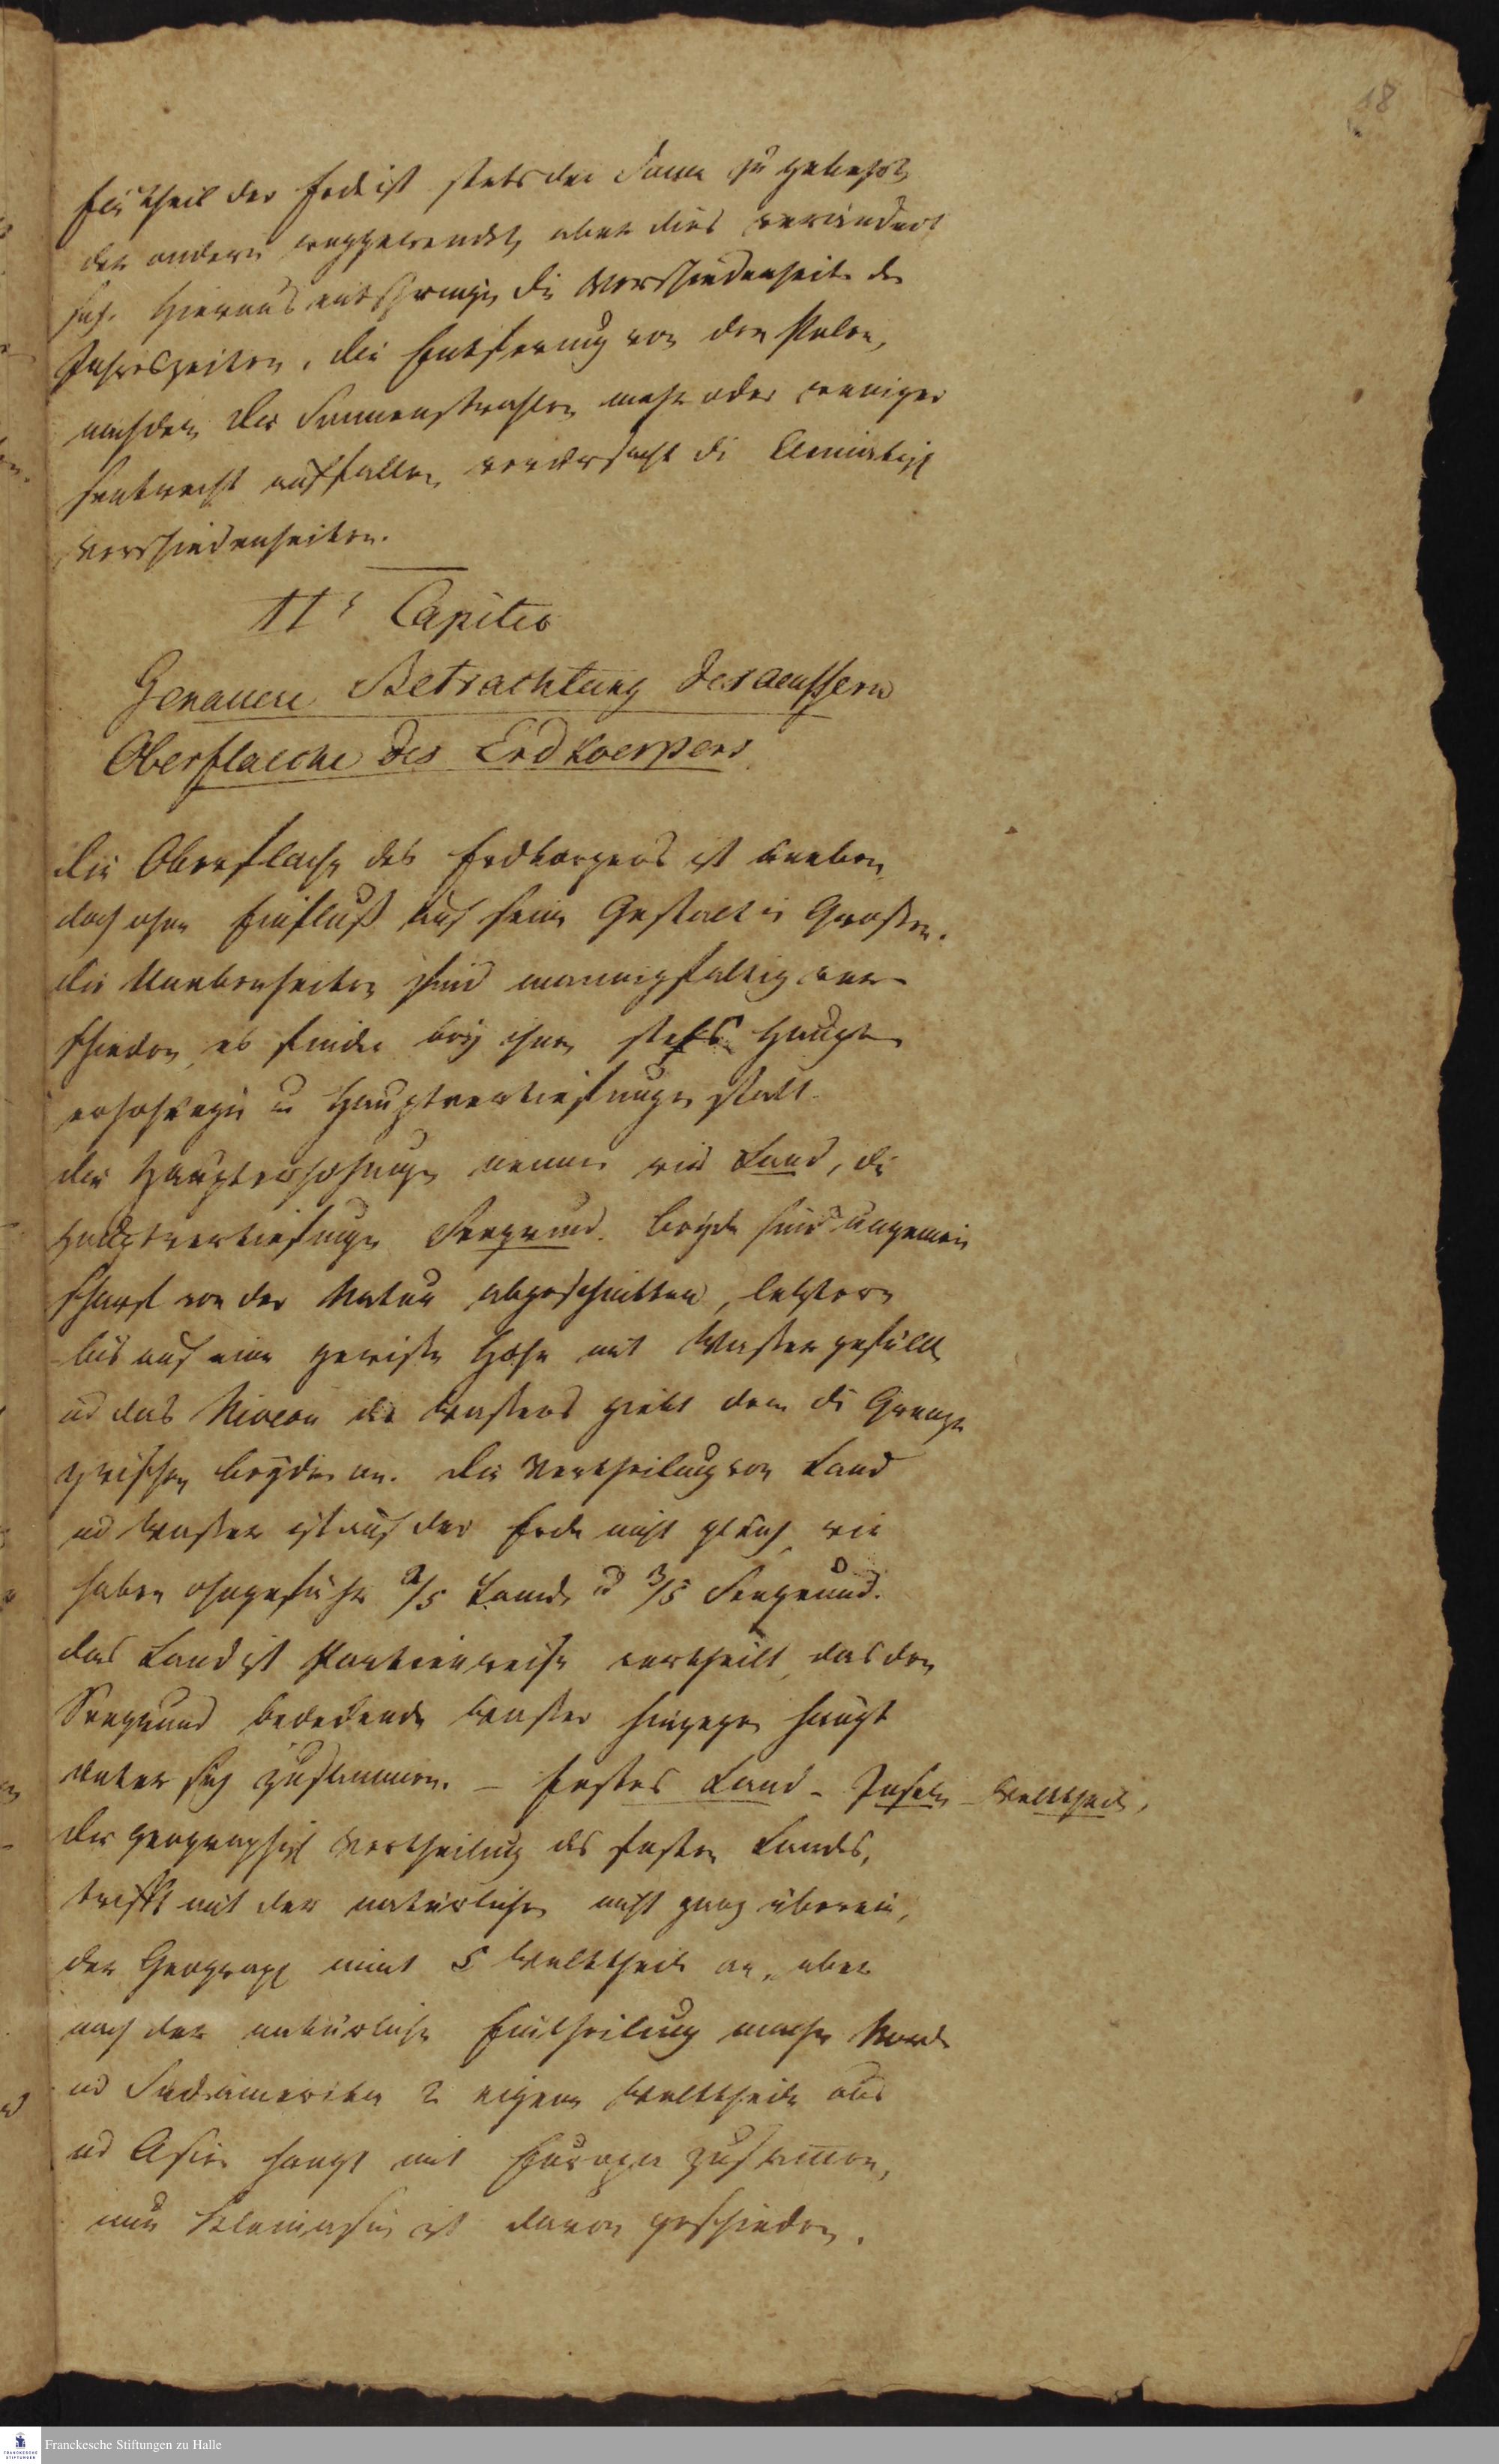 18
Ein Theil der Erde ist stets der Sonne zu gekehrt,
der andere weggewendet, aber dies verändert
sich. Hieraus entspringen die Verschiedenheit der
Jahrszeiten. die Entfernung von den Polen,
nachdem die Sonnenstrahlen mehr oder weniger
senkrecht auffallen verursacht die Climatisch
Verschiedenheiten.
IIs Capitel
Genauere Betrachtung der aeussern
Oberflaeche des Erdkoerpers
Die Oberflache des Erdkorpers ist uneben,
doch ohne Einfluß auf seine Gestalt im Grossen.
die Unebenheiten sind mannigfaltig ver-
schieden, es finden bey ihnen stets Haupt
erhohungen u Hauptvertiefungen statt.
die Haupterhohungen nennen wir Land, die
Hauptvertiefungen Seegrund. Beyde sind ungemein
scharf von der Natur abgeschnitten, letztere
bis auf eine gewisse Hohe mit Wasser gefüllt,
und das Niveau des Wassers giebt denn die Grenze
zwischen beyden an. Die Vertheilung von Land
und Wasser ist auf der Erde nicht gleich, wir
haben ohngefähr 2/5 Land und 3/5 Seegrund.
das Land ist Partienweise vertheilt, das den
Seegrund bedeckende Wasser hingegen hängt
unter sich zusammen. – festes Land – Inseln – Welttheile,
Die geographisch Vertheilung des festen Landes,
trifft mit der natürlichen nicht ganz überein,
der Geograph nimt 5 Welttheile an, aber
nach der natürlichen Eintheilung machen Nord
und Sudamerika 2 eigene Welttheile aus
und Asien hangt mit Europa zusammen,
nur Kleinasien ist davon geschieden.
Franckesche Stiftungen zu Halle